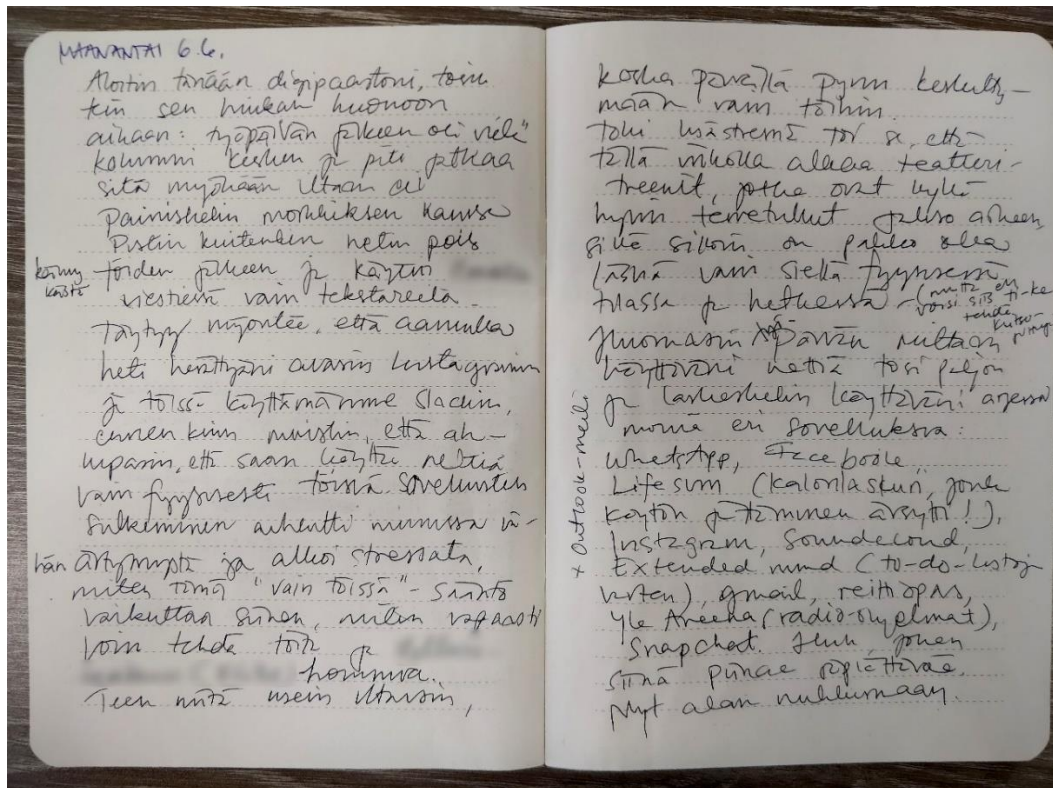 MAANANTAI 6.6.
Aloitin tänään digipaastoni, tosin
kin sen hiukan huonoon
aikaan: työpäivän jälkeen oli vielä
kolumni kesken ja piti jatkaa
sitä myöhään iltaan eli
Painiskelin morkkiksen kanssa
Pistin kuitenkin netin pois
töiden jälkeen ja käytin
viestiessä vain tekstareita.
täytyy myöntää, että aamulla
heti herättyäni avasin Instagramin
ja töissä käyttämämme Slackin,
ennen kuin muistin, että
lupasin, että saan käyttää nettiä
vain fyysisesti töissä. Sovellusten
sulkeminen aiheutti minussa vä-
hän ärtymystä ja alkoi stressata,
miten tämä "vain töissä" - sääntö
vaikuttaa siihen, miten vapaasti
voin tehdä töitä ja
hommia.
Teen niitä usein iltaisin,
koska päivällä pyrin keskitty-
mään vain töihin.
tohi lisästressiä toi se, että
tällä viikolla alkaa teatteri-
treenit, jotka ovat kyllä
hyvin tervetulleet jakso arkeen,
sillä silloin on pakko olla
läsnä vain siellä fyysisessä
tilassa ja hetkessä - (mutta en
voisi siis
tehdä
Huomasin päivän mittaan
käyttäväni nettiä tosi paljon
ja laskeskelin käyttäväni arjessa
monia eri sovelluksia:
WhatsApp, Facebook,
+ Outlook-meili
Lifesum (kalorilaskuri, jonka
käytön jättäminen ärsytti!),
Instagram, Soundcloud,
Extended mind (to-do-listoja
varten), gmail, reittiopas,
Yle Areena (radio-ohjelmat),
Snapchat. Huh, jonen
siinä piinaa
Nyt alan nukkumaan.